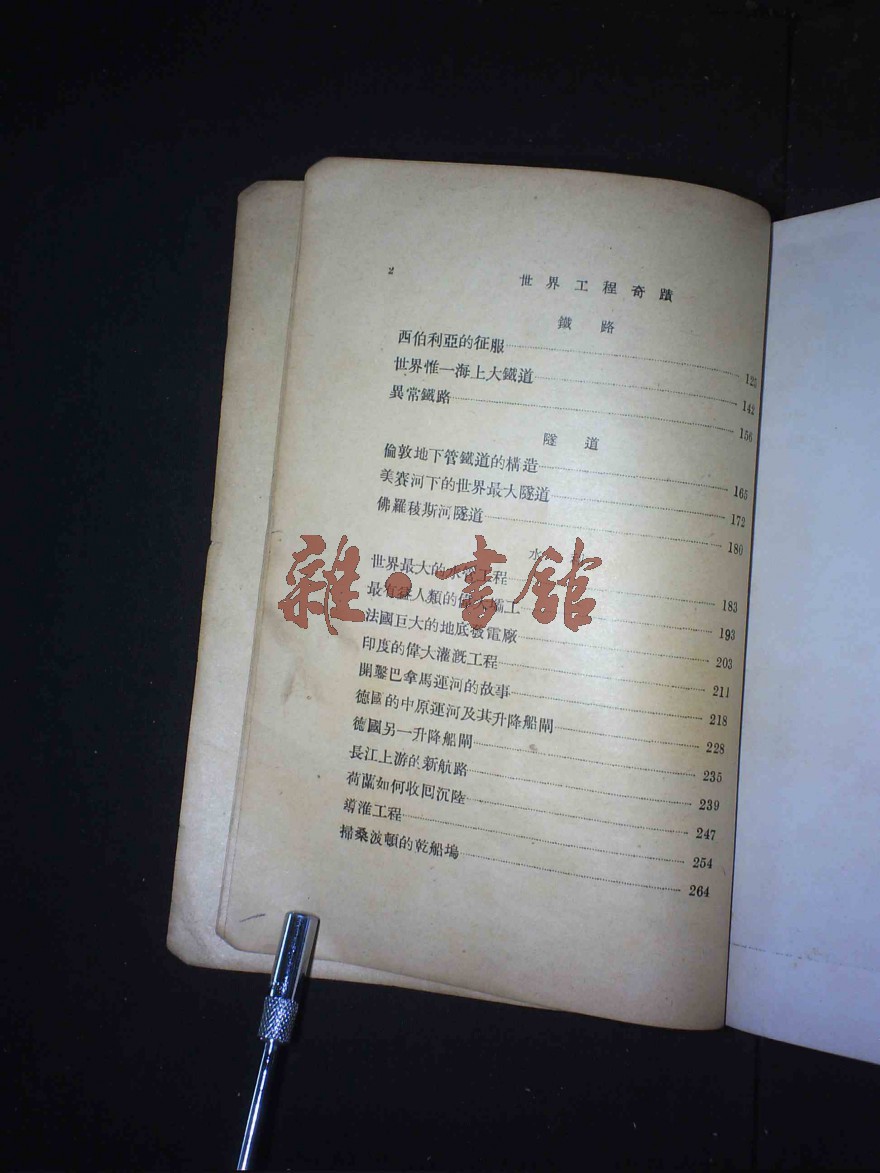 2
世界工程奇蹟
鐵路
西伯利亞的征服 123
世界惟一海上大鐵道 142
異常鐵路 156
隧道
倫敦地下管鐵道的構造 165
美賽河下的世界最大隧道 172
佛羅稜斯河隧道 180
水利
世界最大的水流工程 183
最有益人類的偉大 工 193
法國巨大的地底發電廠 203
印度的偉大灌漑工程 211
開鑿巴拿馬運河的故事 218
德國的中原運河及其升降船閘 228
德國另一升降船閘 235
長江上游的新航路 239
荷蘭如何收回沉陸 247
導淮工程 254
掃桑波頓的乾船塢 264
雜·書館